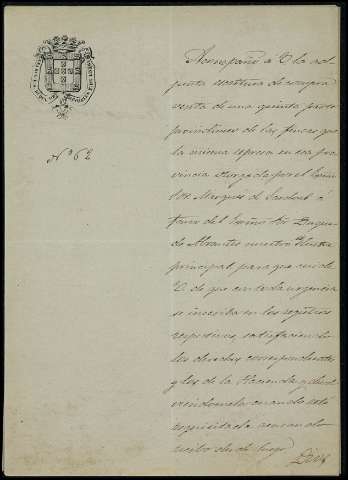 Nº 62
Acompaño á V la ad-
junta escritura de compra
venta de una quinta parte
proindiviso de las fincas que
la misma expresa en esa pro
vincia otorgada por el Exmo
Sor Marqués de Sardoal á
favor del Exmo Sor Duque
de Abrantes nuestro Ilustre
principal para que cuide
V. de que con toda urgencia
se inscriba en los registros
respectivos, satisfaciendo
los derechos correspondientes
y los de la Hacienda y devol
viendomela cuando esté
requisitada acusando
recibo desde luego
Dios